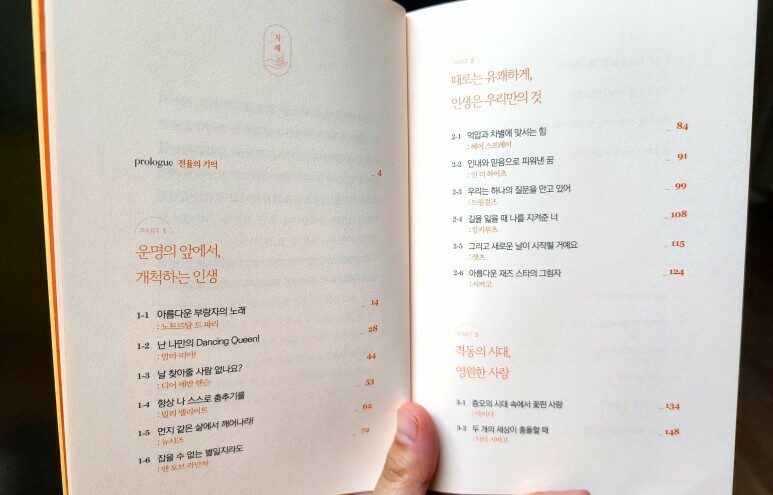 차례
prologue 전율의 기억 _ 4
PART 1
운명의 앞에서,
개척하는 인생
1-1 아름다운 부랑자의 노래 _ 14
: 노트르담 드 파리
1-2 난 나만의 Dancing Queen! _ 28
: 맘마 미아!
1-3 날 찾아줄 사람 없나요? _ 44
: 디어 에반 핸슨
1-4 항상 나 스스로 춤추기를 _ 53
: 빌리 엘리어트
1-5 먼지 같은 삶에서 깨어나라! _ 62
: 뉴시즈
1-6 잡을 수 없는 별일지라도 _ 72
: 맨 오브 라만차
PART 2
때로는 유쾌하게,
인생은 우리만의 것
2-1 억압과 차별에 맞서는 힘 _ 84
: 헤어 스프레이
2-2 인내와 믿음으로 피워낸 꿈 _ 91
: 인 더 하이츠
2-3 우리는 하나의 질문을 안고 있어 _ 99
: 드림걸즈
2-4 길을 잃을 때 나를 지켜준 너 _ 108
: 킹키부츠
2-5 그리고 새로운 날이 시작될 거예요 _ 115
: 캣츠
2-6 아름다운 재즈 스타의 그림자 _ 124
: 시카고
PART 3
격동의 시대,
영원한 사랑
3-1 증오의 시대 속에서 꽃핀 사랑 _ 134
: 아이다
3-2 두 개의 세상이 충돌할 때 _ 148
: 닥터 지바고